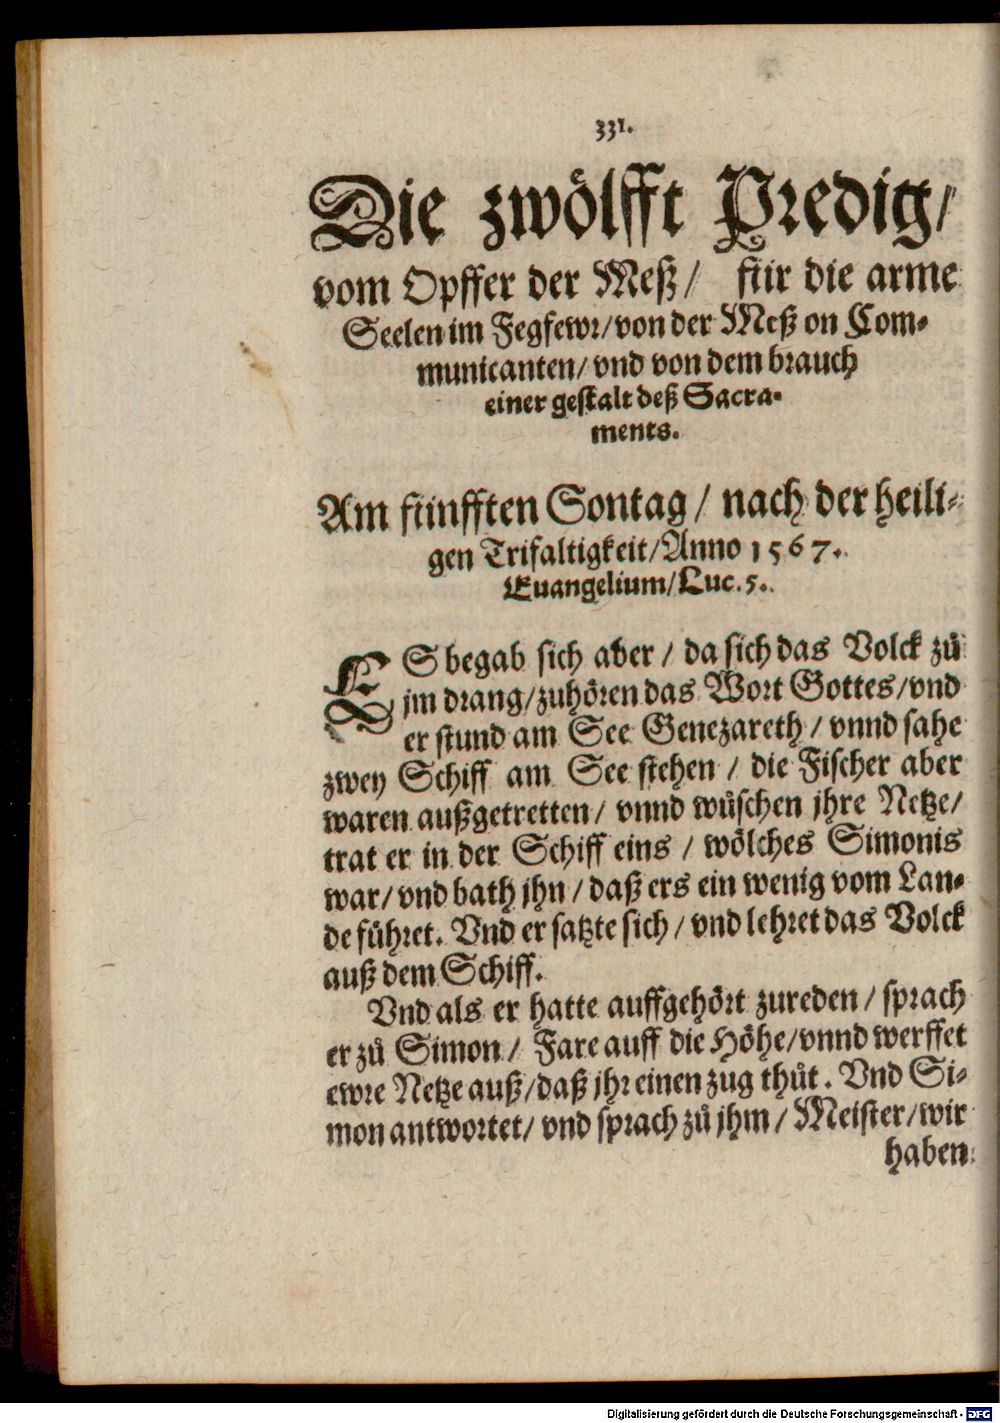 331.
Die zwölfft Predig/
vom Opffer der Meß/ für die arme
Seelen im Fegfewr/von der Meß on Com-
municanten/vnd von dem brauch
einer gestalt deß Sacra-
ments.
Am fünfften Sontag/ nach der heili-
gen Trifaltigkeit/Anno 1567.
Euangelium/Luc.5.
ES begab sich aber/ da sich das Volck zů
jm drang/zuhören das Wort Gottes/vnd
er stund am See Genezareth/ vnnd sahe
zwey Schiff am See stehen/ die Fischer aber
waren außgetretten/ vnnd wůschen jhre Netze/
trat er in der Schiff eins/ wölches Simonis
war/vnd bath jhn/daß ers ein wenig vom Lan-
de führet. Vnd er satzte sich/vnd lehret das Volck
auß dem Schiff.
Vnd als er hatte auffgehört zureden/sprach
er zů Simon/ Fare auff die Höhe/vnnd werffet
ewre Netze auß/daß jhr einen zug thůt. Vnd Si-
mon antwortet/ vnd sprach zů jhm/Meister/wir
haben
Digitalisierung gefördert durch die Deutsche Forschungsgemeinschaft - DFG